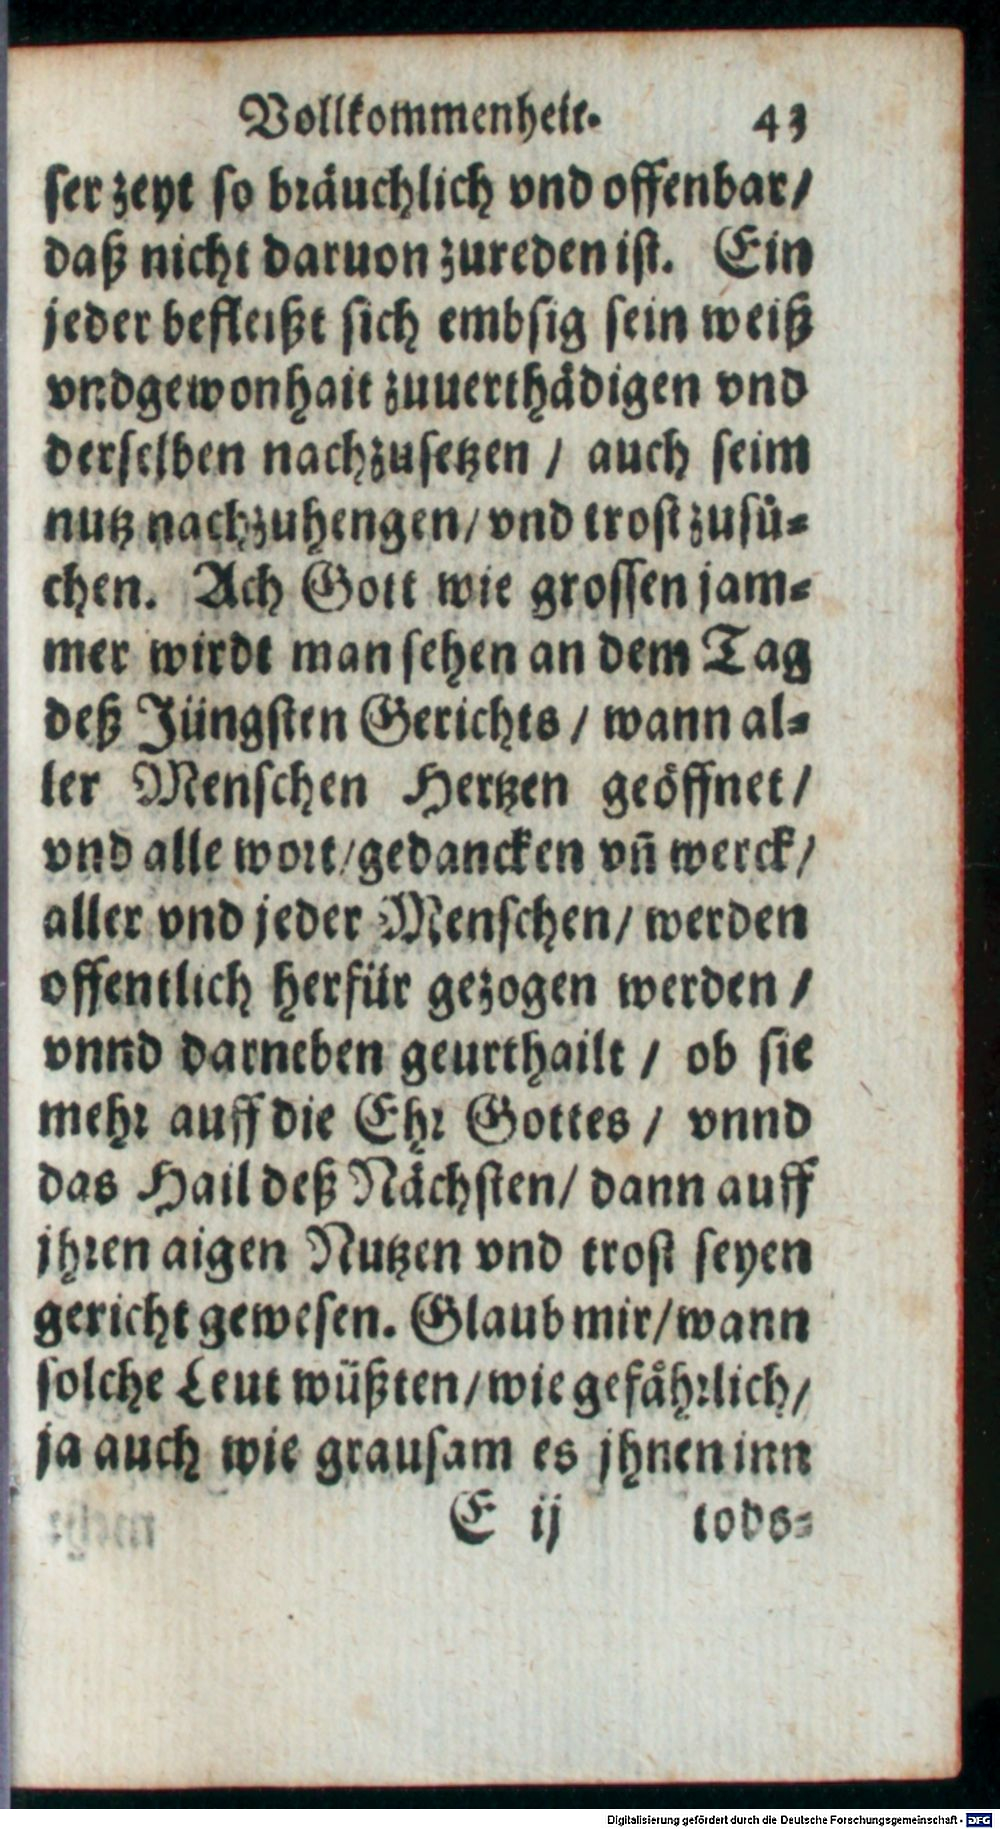 Vollkommenheit. 43
ser zeyt so bräuchlich vnd offenbar/
daß nicht daruon zureden ist. Ein
jeder befleißt sich embsig sein weiß
vnd gewonhait zuuerthådigen vnd
derselben nachzusetzen / auch seim
nutz nachzuhengen/ vnd trost zusü⸗
chen. Ach Gott wie grossen jam⸗
mer wirdt man sehen an dem Tag
deß Jüngsten Gerichts / wann al⸗
ler Menschen Hertzen geöffnet/
vnd alle wort/ gedancken vñ werck/
aller vnd jeder Menschen/ werden
offentlich herfür gezogen werden /
vnnd darneben geurthailt / ob sie
mehr auff die Ehr Gottes / vnnd
das Hail deß Nächsten/ dann auff
jhren aigen Nutzen vnd trost seyen
gericht gewesen. Glaub mir/ wann
solche Leut wüßten/ wie gefåhrlich/
ja auch wie grausam es jhnen inn
E ij tods⸗
Digitalisierung gefördert durch die Deutsche Forschungsgemeinschaft - DFG